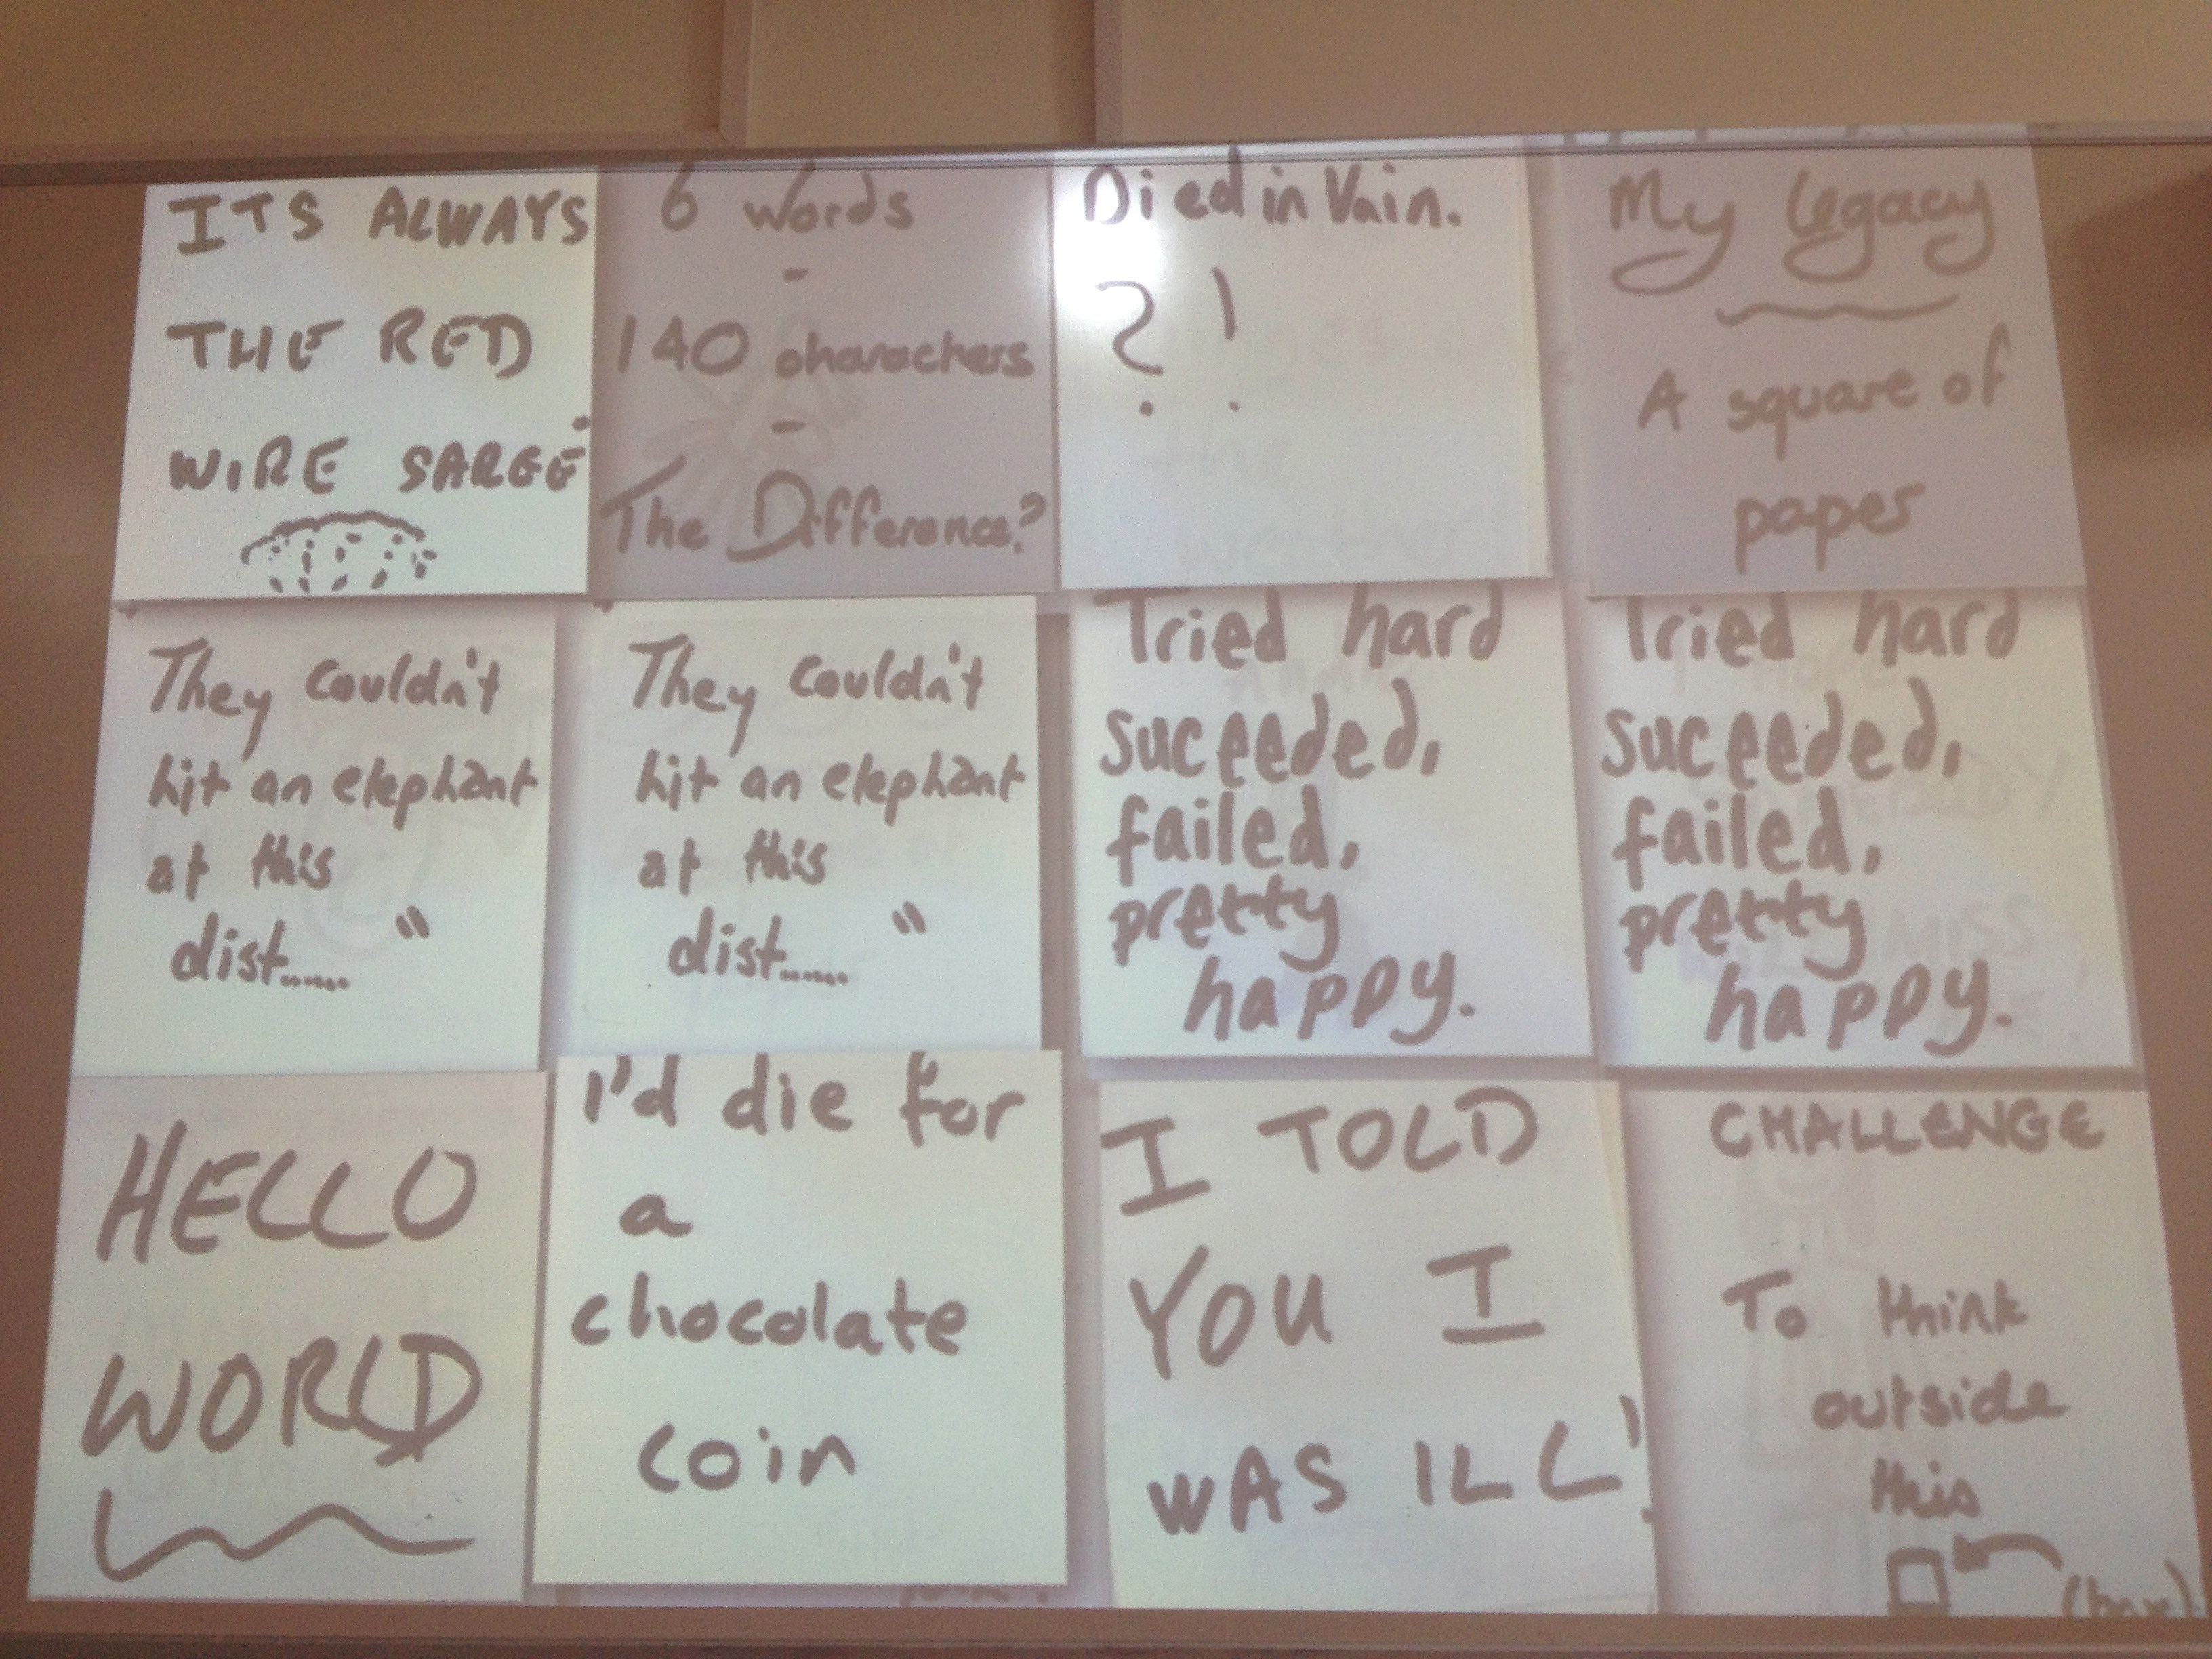 ITS ALWAYS
THE RED
WIRE SARGE
6 words
-
140 charachers
-
The Difference?
Died in Vain.
? !
My legacy
A square of
paper
They couldn't
hit an elephant
at this
dist......"
They couldn't
hit an elephant
at this
dist......"
Tried hard
suceeded,
failed,
pretty
happy.
Tried hard
suceeded,
failed,
pretty
happy.
HELLO
WORLD
I'd die for
a
chocolate
coin
I TOLD
YOU I
WAS ILL!
CHALLENGE
To think
outside
this
(box)!